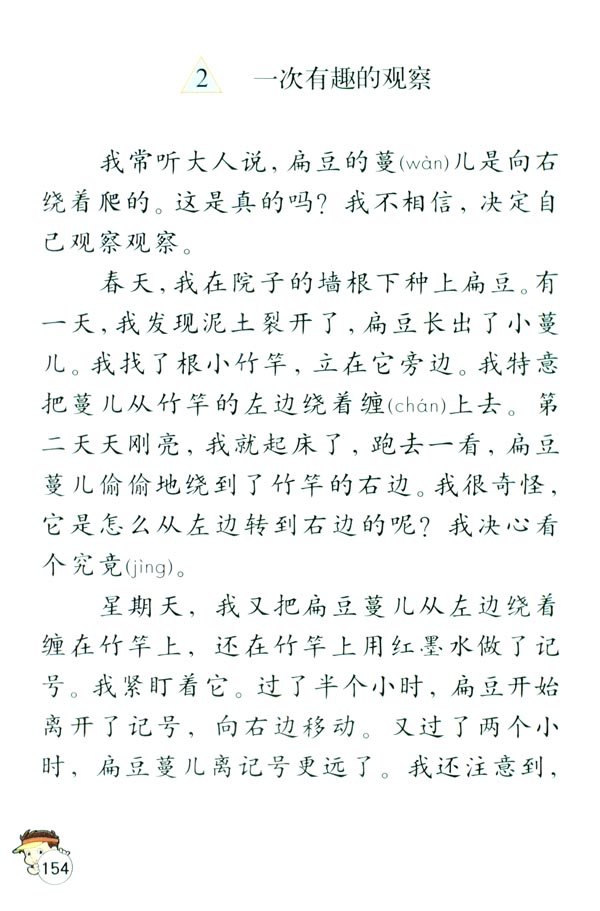 2 一次有趣的观察
我常听大人说，扁豆的蔓(wàn)儿是向右
绕着爬的。这是真的吗？我不相信，决定自
己观察观察。
春天，我在院子的墙根下种上扁豆。有
一天，我发现泥土裂开了，扁豆长出了小蔓
儿。我找了根小竹竿，立在它旁边。我特意
把蔓儿从竹竿的左边绕着缠(chán)上去。第
二天天刚亮，我就起床了，跑去一看，扁豆
蔓儿偷偷地绕到了竹竿的右边。我很奇怪，
它是怎么从左边转到右边的呢？我决心看
个究竟(jìng)。
星期天，我又把扁豆蔓儿从左边绕着
缠在竹竿上，还在竹竿上用红墨水做了记
号。我紧盯着它。过了半个小时，扁豆开始
离开了记号，向右边移动。又过了两个小
时，扁豆蔓儿离记号更远了。我还注意到，
154